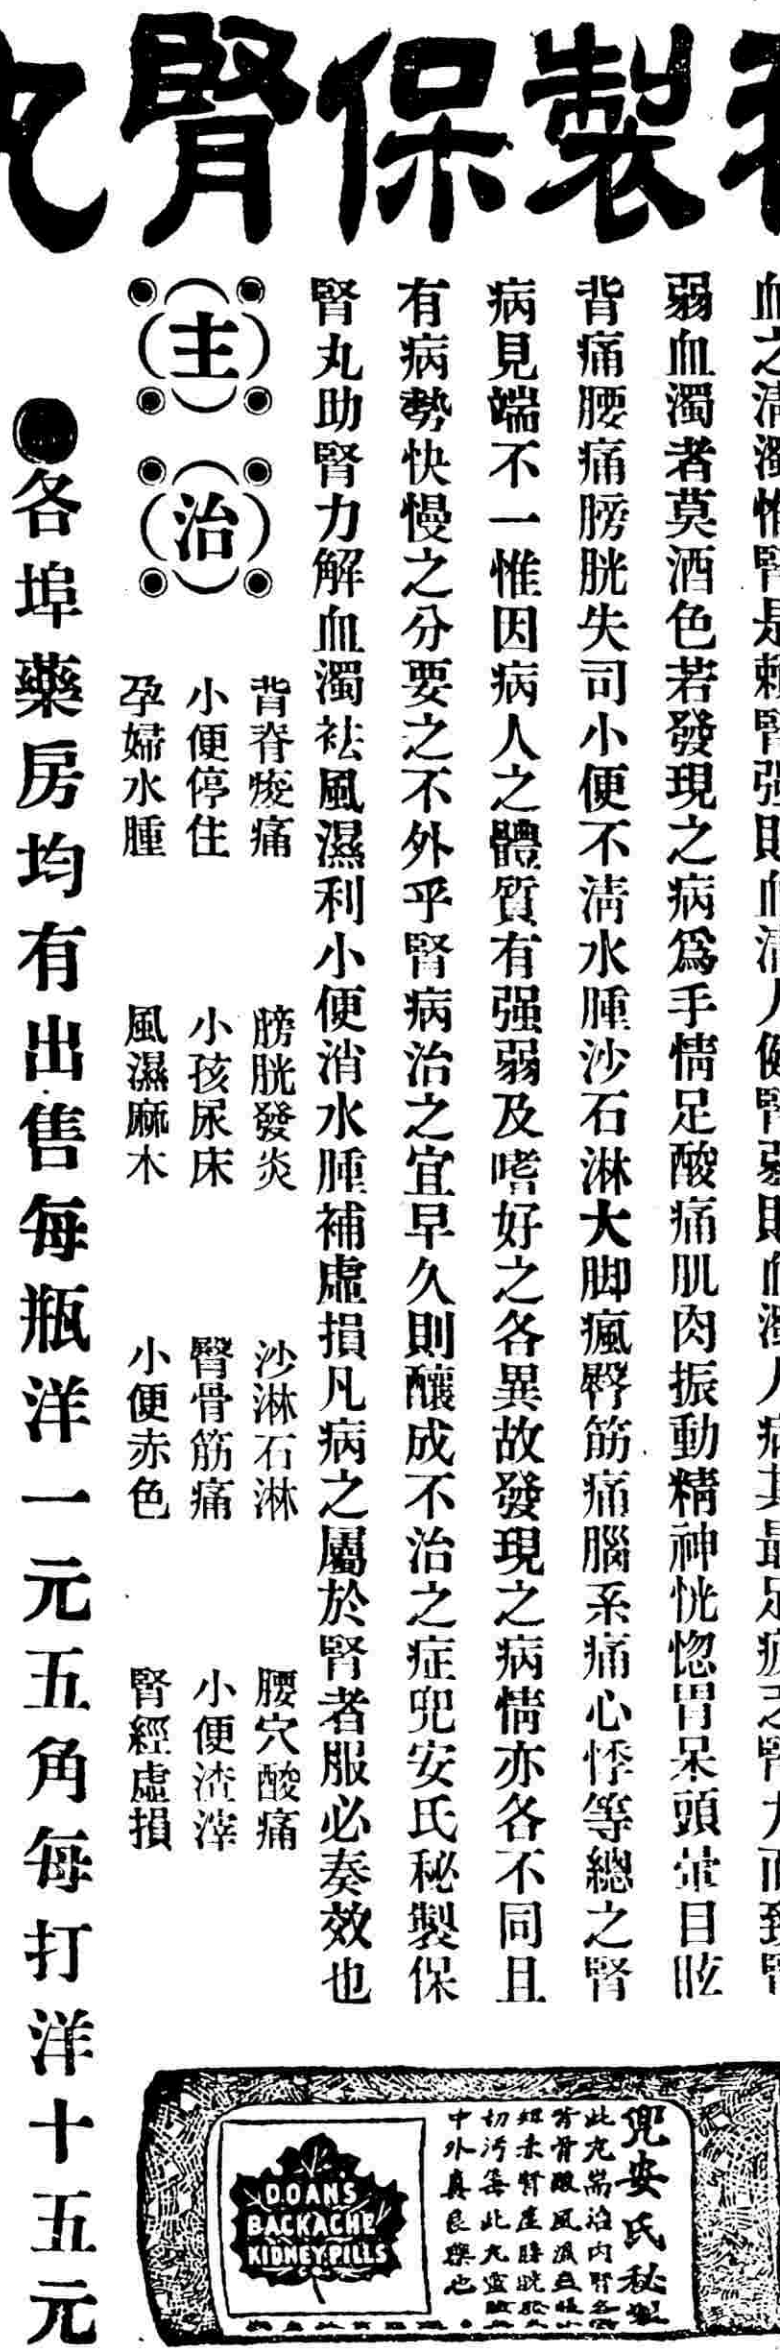 秘製保腎丸
血之清濁惟腎是賴腎强則血清人健腎弱則血濁人病其最足疲乏腎力而致腎
弱血濁者莫酒色若發現之病爲手情足酸痛肌肉振動精神恍惚胃呆頭暈目眩
背痛腰痛膀胱失司小便不淸水腫沙石淋大脚瘋臀筋痛腦系痛心悸等總之腎
病見端不一惟因病人之體質有强弱及嗜好之各異故發現之病情亦各不同且
有病勢快慢之分要之不外乎腎病治之宜早久則釀成不治之症兜安氏秘製保
腎丸助腎力解血濁祛風濕利小便消水腫補虛損凡病之屬於腎者服必奏效也
主治
背脊痠痛
膀胱發炎
沙淋石淋
腰穴酸痛
小便停住
小孩尿床
臀骨筋痛
小便渣滓
孕婦水腫
風濕麻木
小便赤色
腎經虛損
●各埠藥房均有出售每瓶洋一元五角每打洋十五元
兜安氏秘製
此丸耑治內腎各
背骨酸風濕
切污等此丸靈
中外真良藥也
DOANS
BACKACHE
KIDNEY PILLS